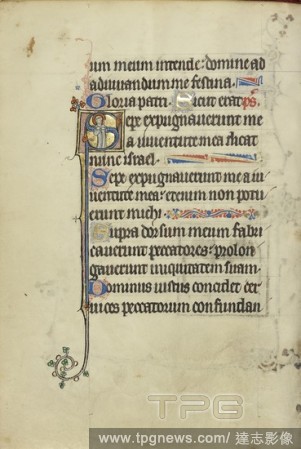 um meum intende: domine ad
adiuuandum me festina.
Gloria patri. Sicut erat. ps.
Sepe expugnauerunt me
a iuuentute mea dicat
nunc israel.
Sepe expugnauerunt me a iu
uentute mea: etenim non potu
erunt michi.
Supra dorsum meum fabri
cauerunt peccatores: prolon
gauerunt iniquitatem suam.
Dominus iustus concidet cer
uices peccatorum confundan
TPG
www.tpgnews.com/ 達志影像